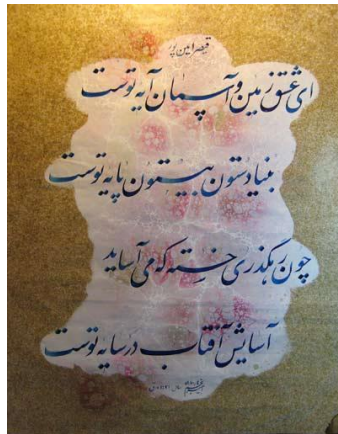 قیصر امین پور
ای عشق زمین و آسمان آیه توست
بنیاد ستون بیستون پایه توست
چون رهگذری خسته که می آساید
آسایش آفتاب در سایه توست